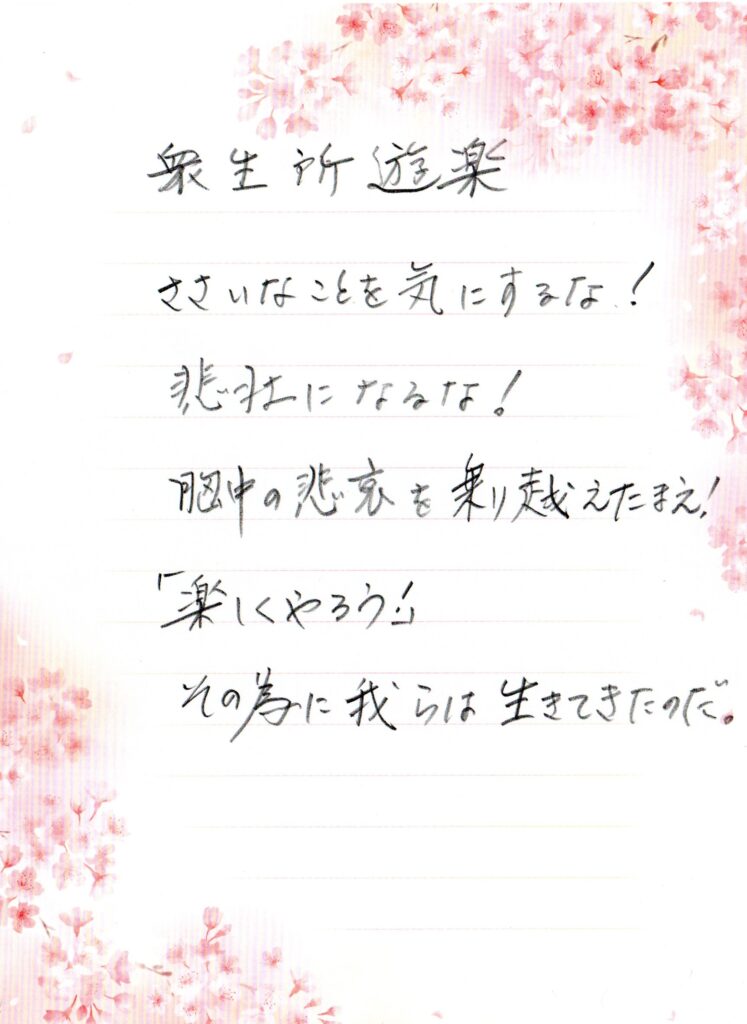 衆生所遊楽
ささいなことを気にするな!
悲壮になるな!
胸中の悲哀を乗り越えたまえ!
「楽しくやろう!」
その為に我らは生きてきたのだ。